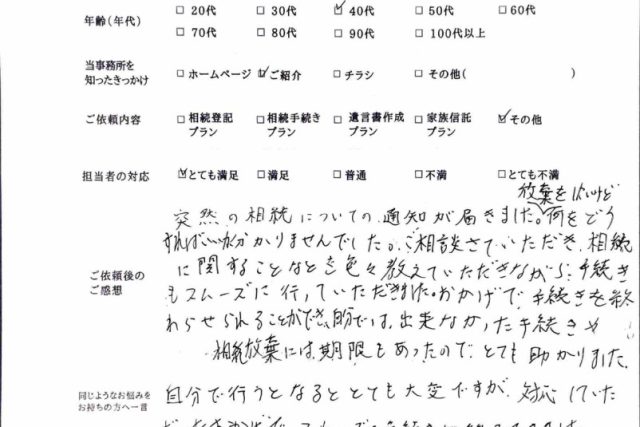 年齢(年代) □20代 □30代 ☑40代 □50代 □60代
□70代 □80代 □90代 □100代以上
当事務所を
知ったきっかけ □ホームページ ☑ご紹介 □チラシ □その他( )
ご依頼内容 □相続登記プラン □相続手続きプラン □遺言書作成プラン □家族信託プラン ☑その他
担当者の対応 ☑とても満足 □満足 □普通 □不満 □とても不満
放棄を
突然の相続についての通知が届きました。何をどう
すればいいか分かりませんでした。ご相談させていただき、相続
ご依頼後の
ご感想
に関することなどを色々教えていただきながら、手続き
もスムーズに行っていただきました。おかげで手続きを終
わらせられることができ、自分では出来なかった手続き
相続放棄には期限もあったので、とても助かりました。
同じようなお悩みを
お持ちの方へ一言
自分で行うとなるととても大変ですが、対応していた